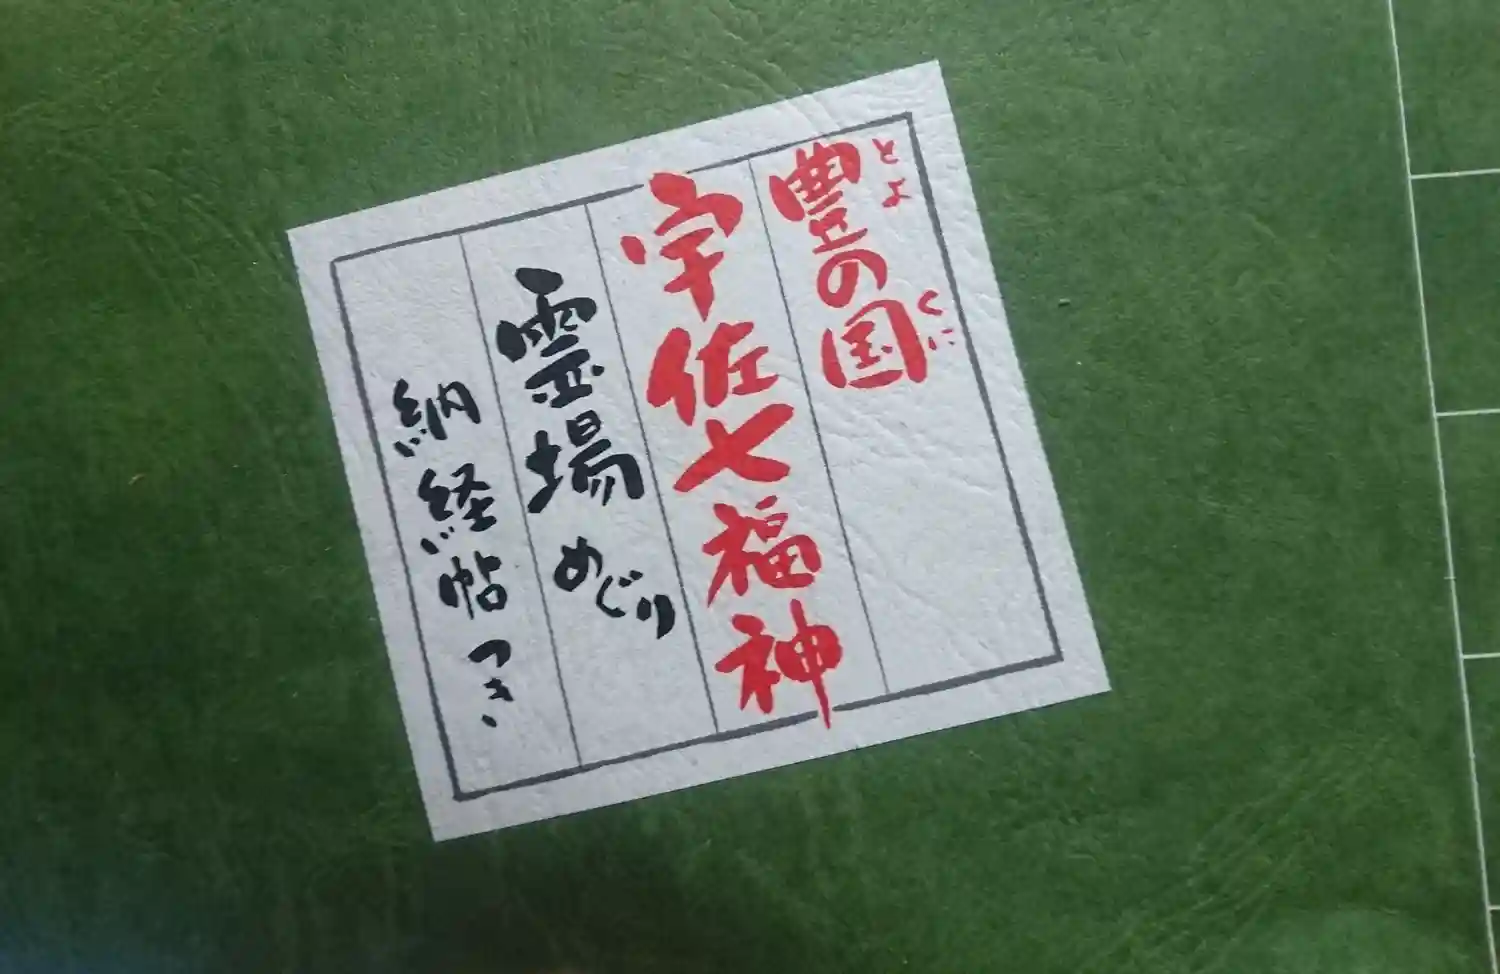 とよ くに
豊の国
宇佐七福神
霊場めぐり
納経帖つき